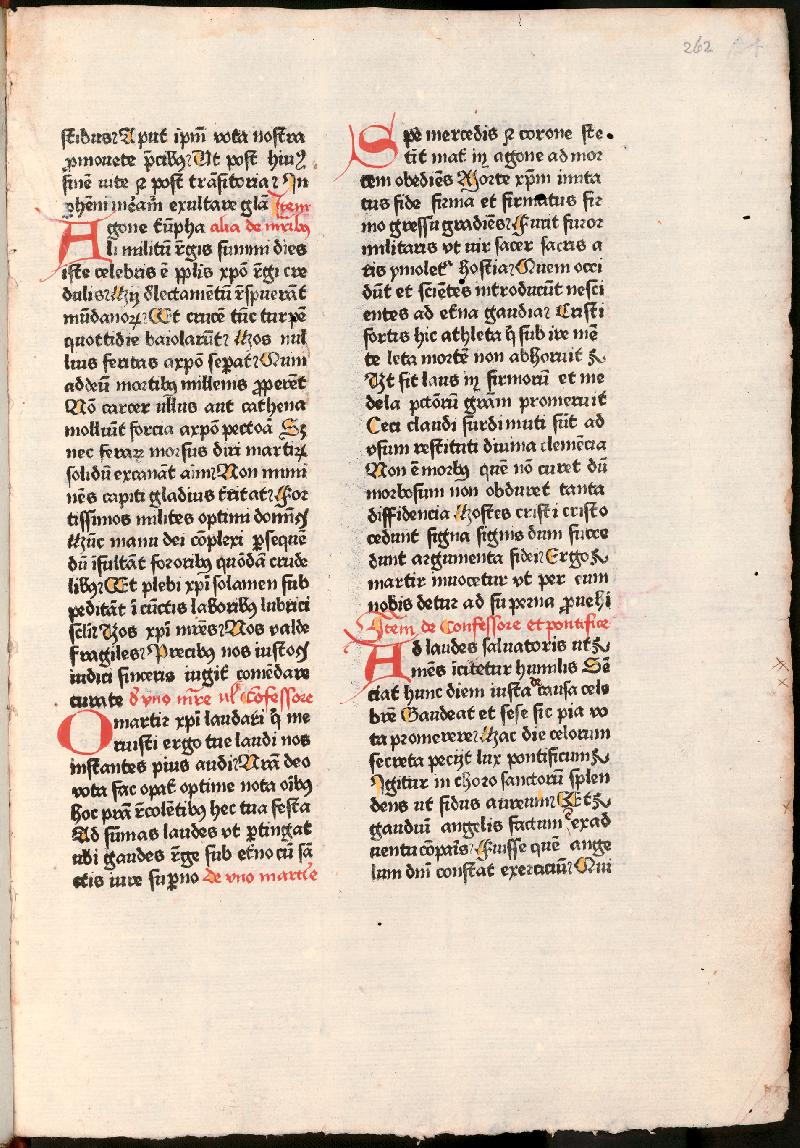 262
stibus Aput ip̄m vota nostra
ꝓmouete p̄cibꝰ Ut post huiꝰ
finē vite ⁊ post trāsitoria In
ꝑhēni mēam exultare glā Item
Agone tͥūpha alia de mr̄ibꝰ
li militū r̄gis summi dies
iste celebris ē pplis xpō r̄gi cre
dulis Hij dlectamētū r̄spuerāt
mūdanoꝝ Et crucē tūc turpē
quottidie baiolarūt Hos nul
lius feritas axpō sepat Num
addeū mortibꝰ millenis ꝓperēt
Nō carcer ullus aut cathena
molliūt forcia axpō pectoā Sꝫ
nec feraꝝ morsus diri martiꝝ
solidū excanāt aīm Non mini
nēs capiti gladius t̄ritat For
tissimos milites optimi domīꝫ
Hūc manu dei cōplexi ꝑsequē
dū īsultāt fororibꝰ quōdā crude
libꝰ Et plebi xpī solamen sub
peditāt ī cūctis laboribꝰ lubrici
scl̄i Vos xpī mr̄es Nos valde
fragiles Precibꝰ nos iustoꝫ
iudici sinceris iugit̄ comēdare
curate d̄ vno mr̄e ul̓ Cōfessore
O martir xpī laudari q̄ me
ruisti ergo tue laudi nos
instantes pius audi Nr̄ām deo
vota fac opat̄ optime nota oībꝰ
hoc prām r̄colētibꝰ hec tua festa
Ad sūmas laudes vt ꝑtingat
ubi gaudes r̄ge sub et̄no cū sā
ctis iure suꝑno de vno martīe
Spē mercedis ⁊ corone ste
tit mat̄ in agone ad mor
tem obediēs Morte xp̄m imita
tus fide firma et firmatus fir
mo gressu gradiēs Furit furor
militaris vt uir sacer sacris a
ris ymolet hostia Quem occi
dūt et sciētes introducūt nesci
entes ad et̄na gaudia Cristi
fortis hic athleta q̄ sub ire mē
te leta mortē non abhoruit
Ut sit laus in firmorū et me
dela pctōrū grām promeruit
Ceci claudi surdi muti sūt ad
vsum restituti diuina clemēcia
Non ē morbꝰ quē nō curet dū
morbosum non obduret tanta
diffidencia Hostes cristi cristo
cedunt signa signis dum succe
dunt argumenta fidei Ergo
martir inuocetur vt per eum
nobis detur ad superna ꝓuehi
Item de Confessore et pontifice
Ad laudes saluatoris ut
mēs īcitetur humilis Sē
ciat hunc diem iusta de causa cele
brē Gaudeat et sese sic pia vo
ta promerere Hac die celorum
secreta pecijt lux pontificum
Igitur in choro sanctorū splen
dens ut sidus aureum Et
gaudiū angelis factum ē exad
uentu cōparis Fuisse quē ange
lum dnī constat exerciciū Qui